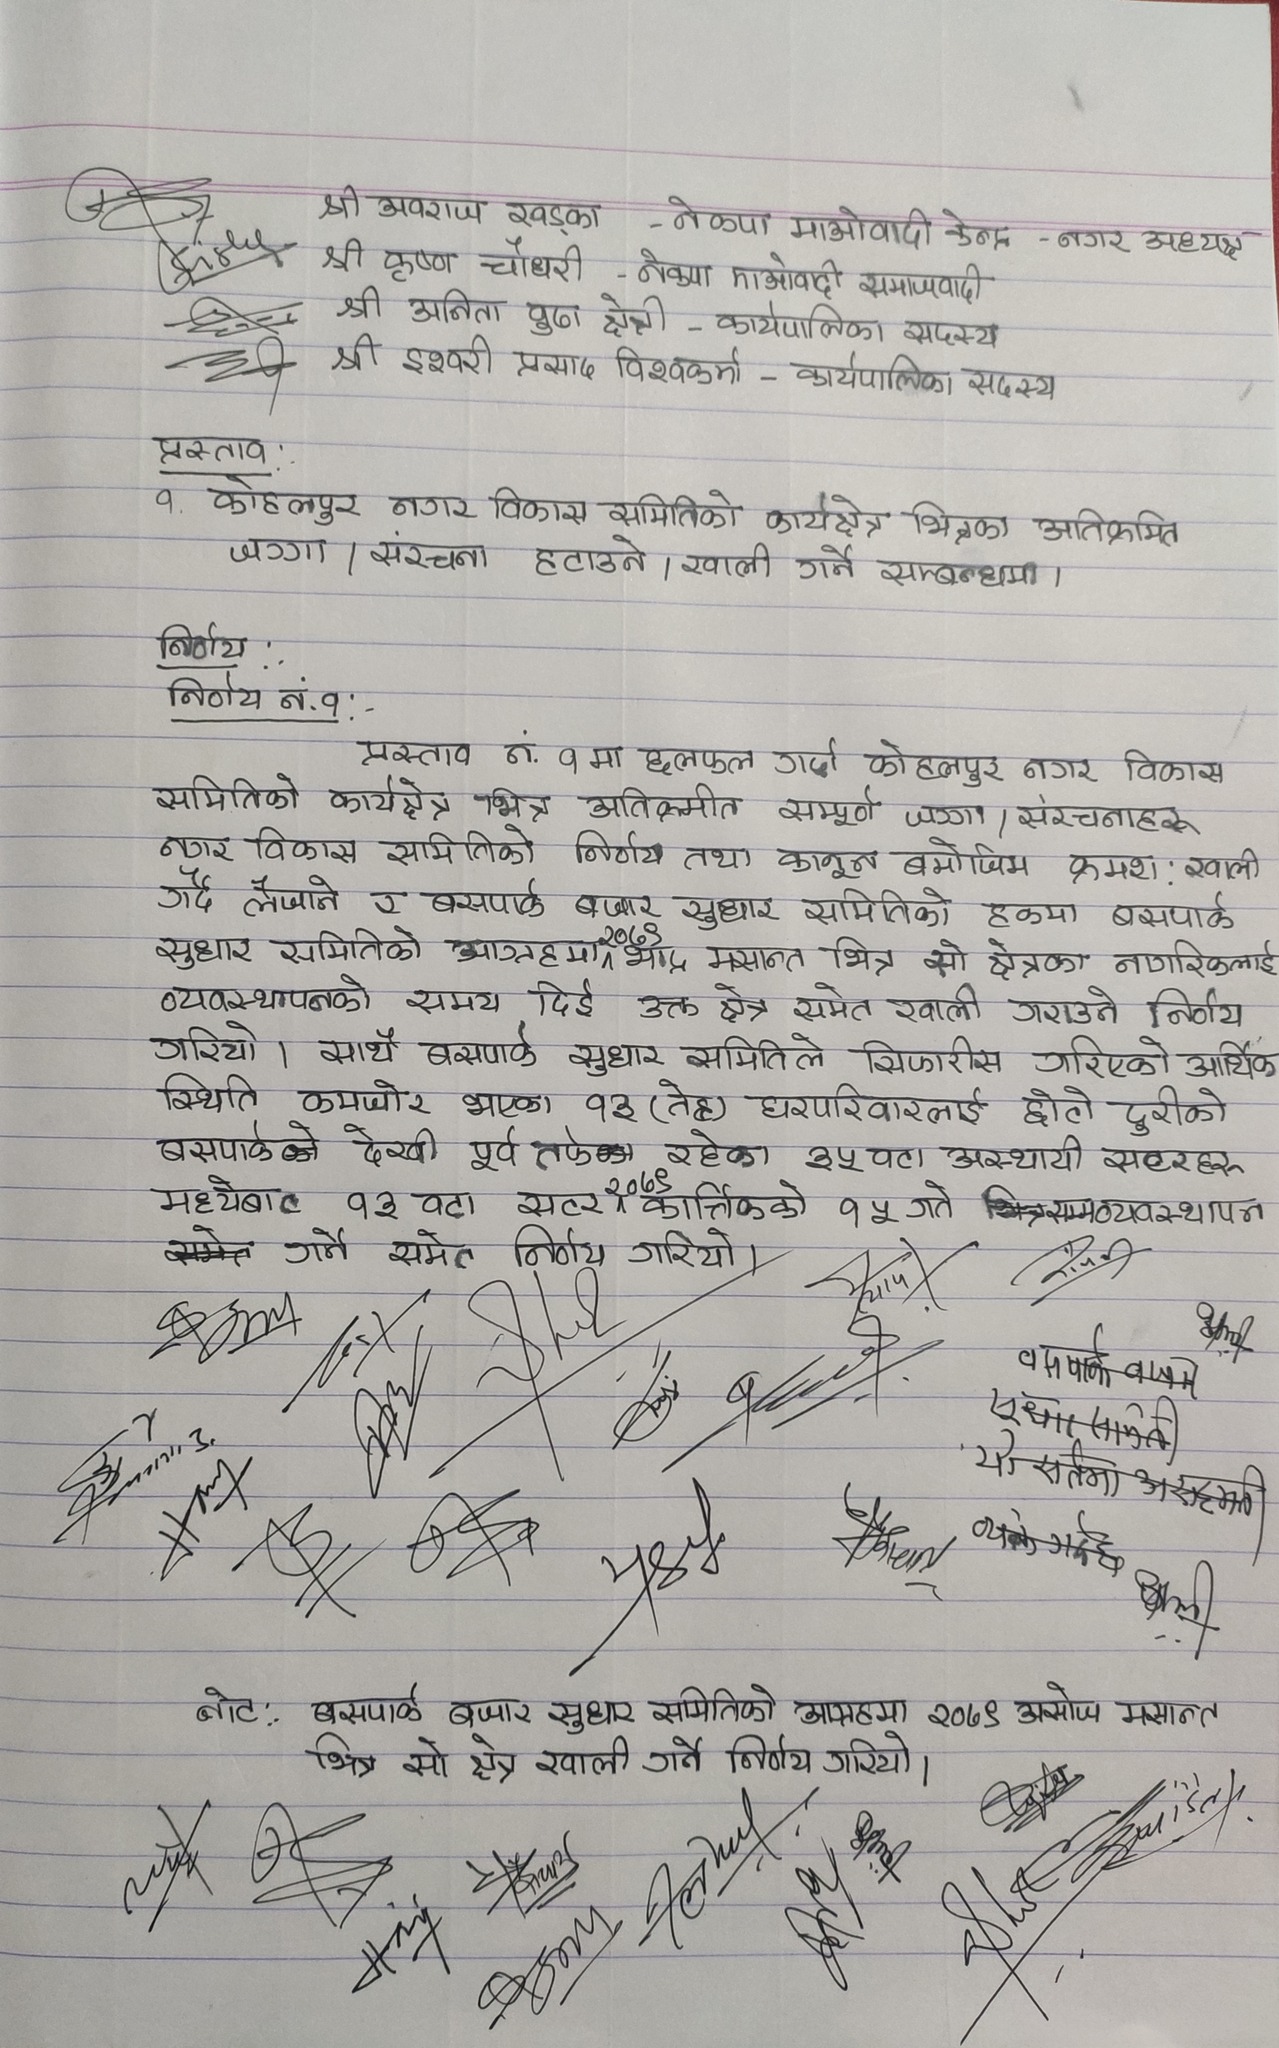 श्री अवराज खड्का - नेकपा माओवादी केन्द्र - नगर अध्यक्ष
श्री कृष्ण चौधरी - नेकपा माओवादी समाजवादी
श्री अनिता पुढा क्षेत्री - कार्यपालिका सदस्य
श्री इश्वरी प्रसाद विश्वकर्मा - कार्यपालिका सदस्य
प्रस्ताव:
१. कोहलपुर नगर विकास समितिको कार्यक्षेत्र भित्रका अतिक्रमित
जग्गा / संरचना हटाउने / खाली गर्ने सम्बन्धमा।
निर्णय:
निर्णय नं. १:-
प्रस्ताव नं. १ मा छलफल गर्दा कोहलपुर नगर विकास
समितिको कार्यक्षेत्र भित्र अतिक्रमीत सम्पूर्ण जग्गा / संरचनाहरू
नगर विकास समितिको निर्णय तथा कानून बमोजिम क्रमश: खाली
गर्दै लैजाने र बसपार्क बजार सुधार समितिको हकमा बसपार्क
सुधार समितिको आग्रहमा २०७९ भाद्र मसान्त भित्र सो क्षेत्रका नागरिकलाई
व्यवस्थापनको समय दिई उक्त क्षेत्र समेत खाली गराउने निर्णय
गरियो। साथै बसपार्क सुधार समितिले सिफारीस गरिएको आर्थिक
स्थिति कमजोर भएका १३ (तेह्र) घरपरिवारलाई छोटो दुरीको
बसपार्क देखी पूर्व तर्फ रहेका ३५ वटा अस्थायी सटरहरू
मध्येबाट १३ वटा सटर २०७९ कार्त्तिकको १५ गते सम्म व्यवस्थापन
गर्ने समेत निर्णय गरियो।
बसपार्क बजार
सुधार समिती
यो सर्तमा असहमती
व्यक्त गर्दछ
नोट: बसपार्क बजार सुधार समितिको आग्रहमा २०७९ असोज मसान्त
भित्र सो क्षेत्र खाली गर्ने निर्णय गरियो।